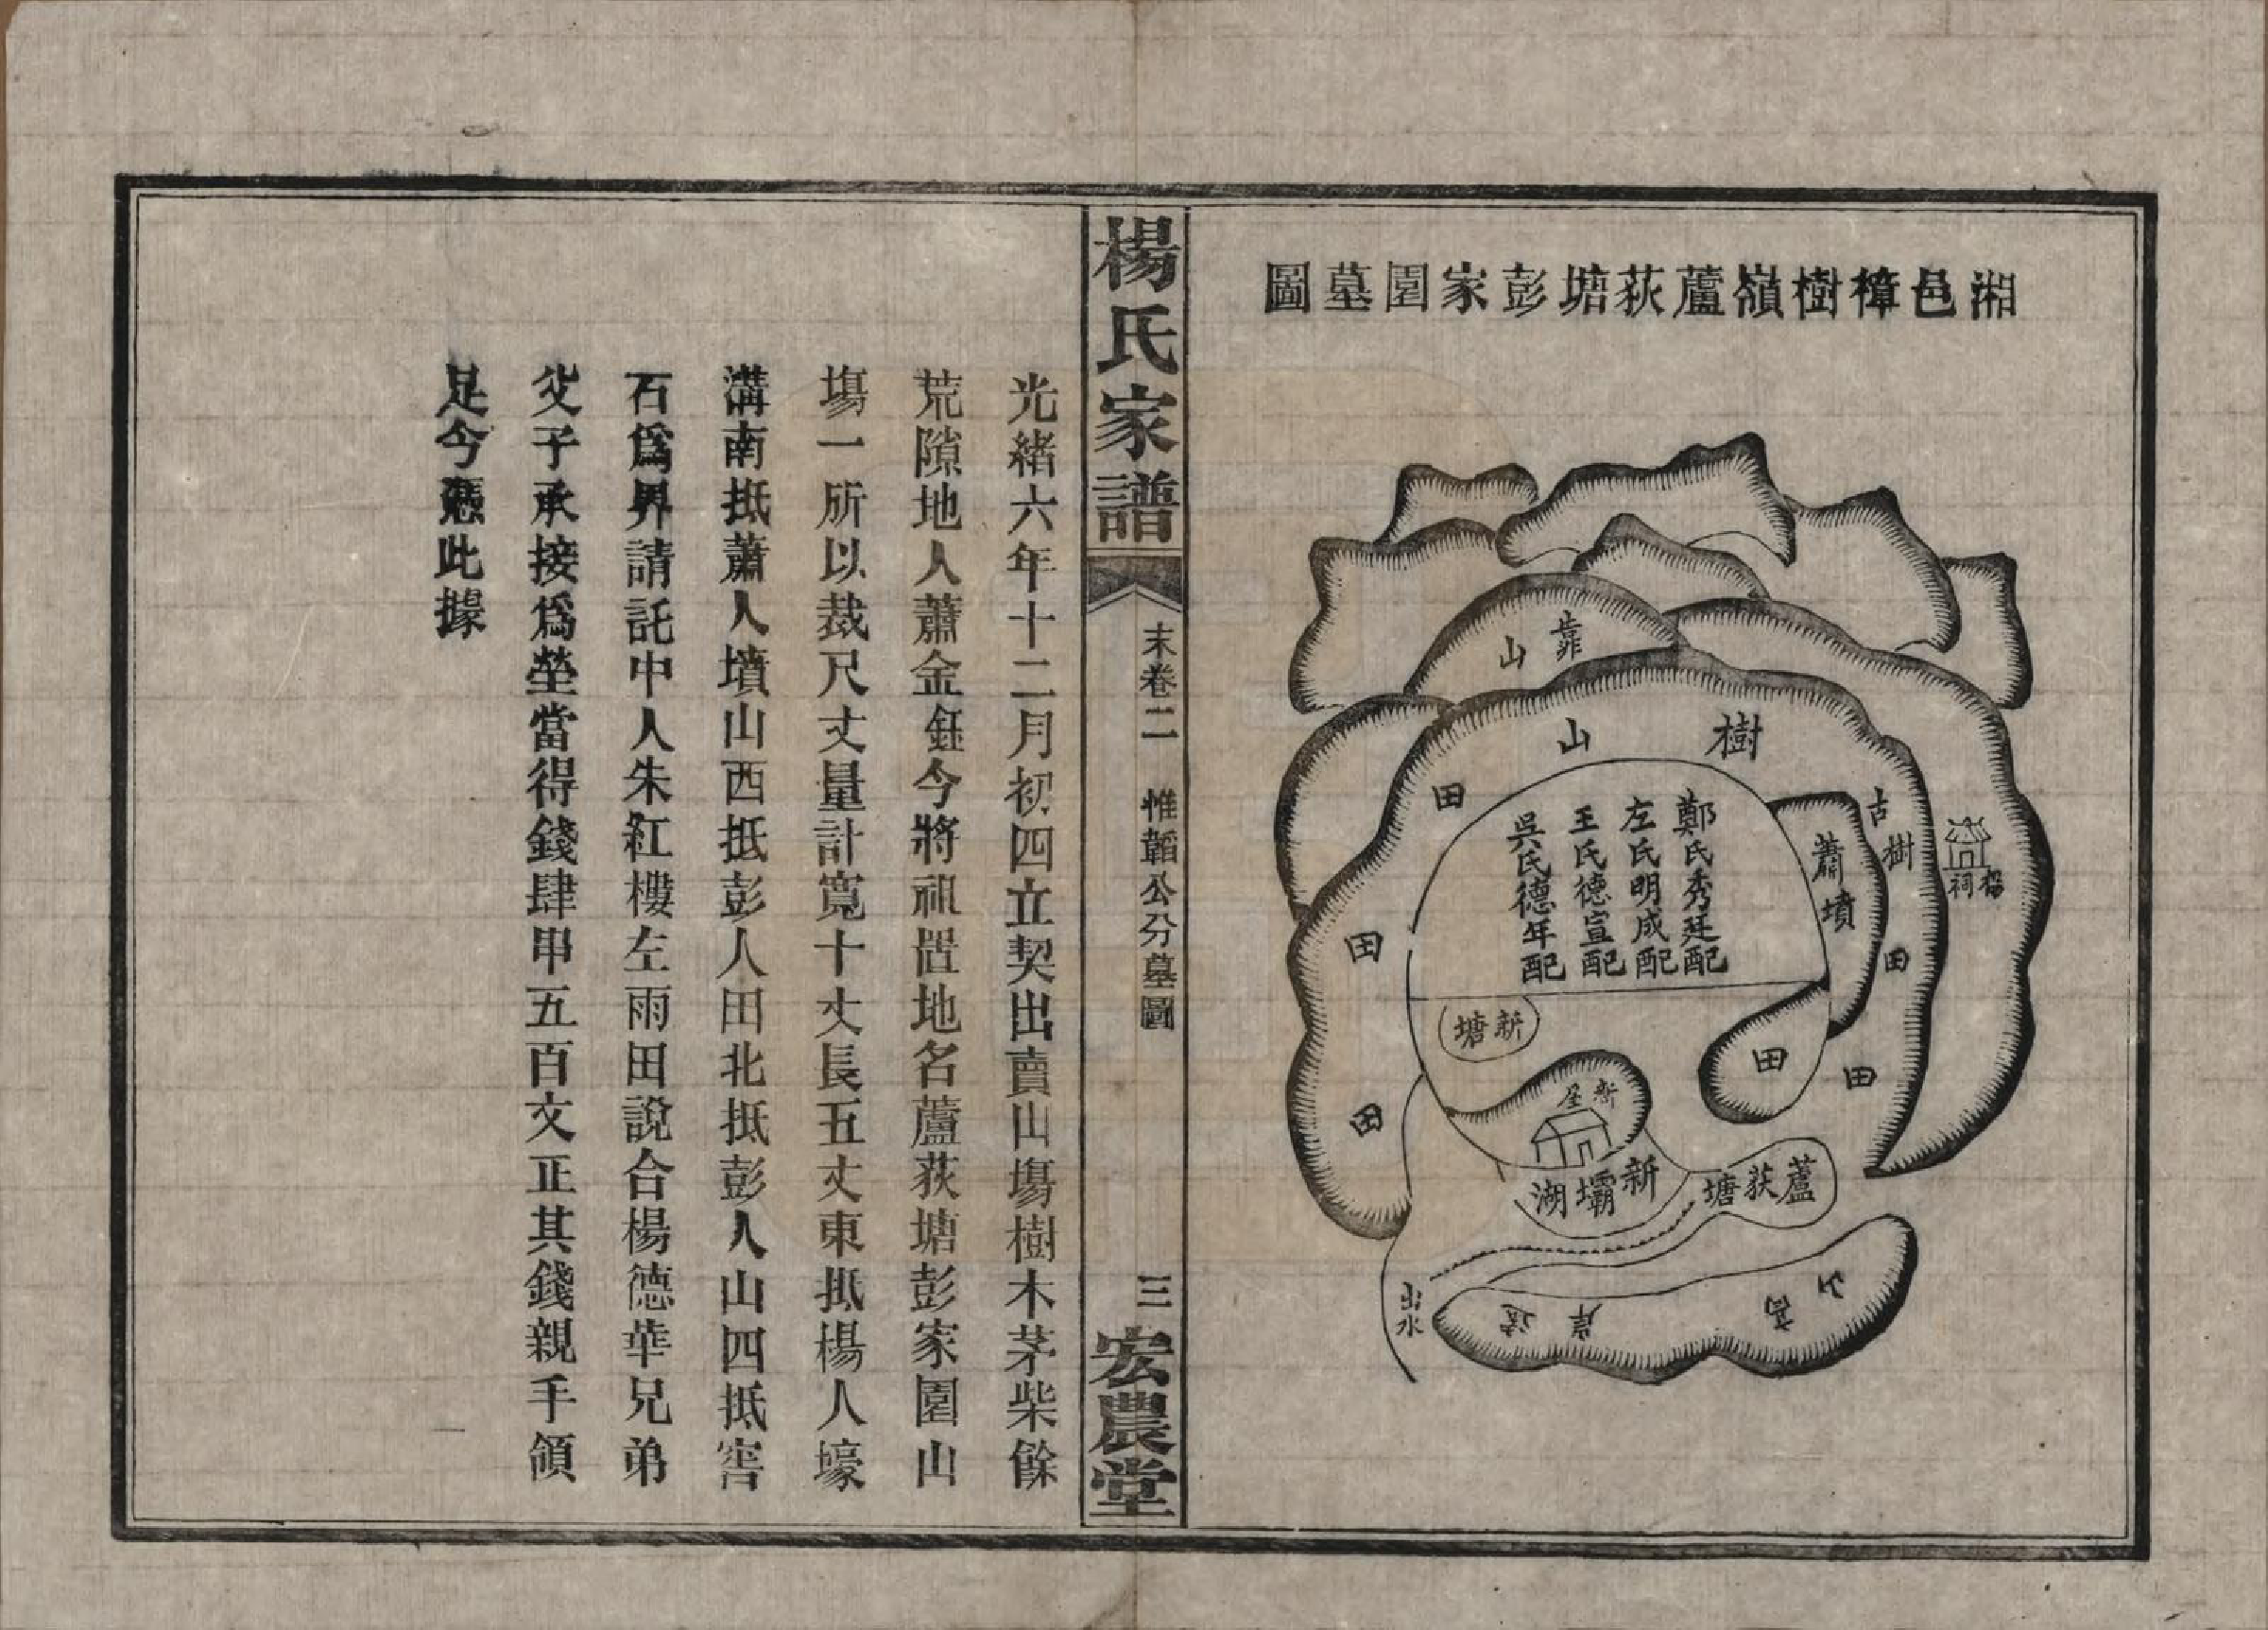 湘邑樟樹嶺蘆荻塘彭家園墓圖
靠山
樹山
古樹
楊祠
蕭墳
田
田
田
田
田
田
鄭氏秀廷配
左氏明成配
王氏德宣配
吳氏德年配
新塘
新屋
新壩湖
蘆荻塘
出水
高山
岸
楊氏家譜
末卷二 惟韜公分墓圖
三
宏農堂
光緒六年十二月初四立契出賣山塲樹木茅柴餘
荒隙地人蕭金鈺今將祖置地名蘆荻塘彭家園山
塲一所以裁尺丈量計寬十丈長五丈東抵楊人壕
溝南抵蕭人墳山西抵彭人田北抵彭人山四抵窖
石爲界請託中人朱紅樓左雨田說合楊德華兄弟
父子承接爲塋當得錢肆串五百文正其錢親手領
足今憑此據